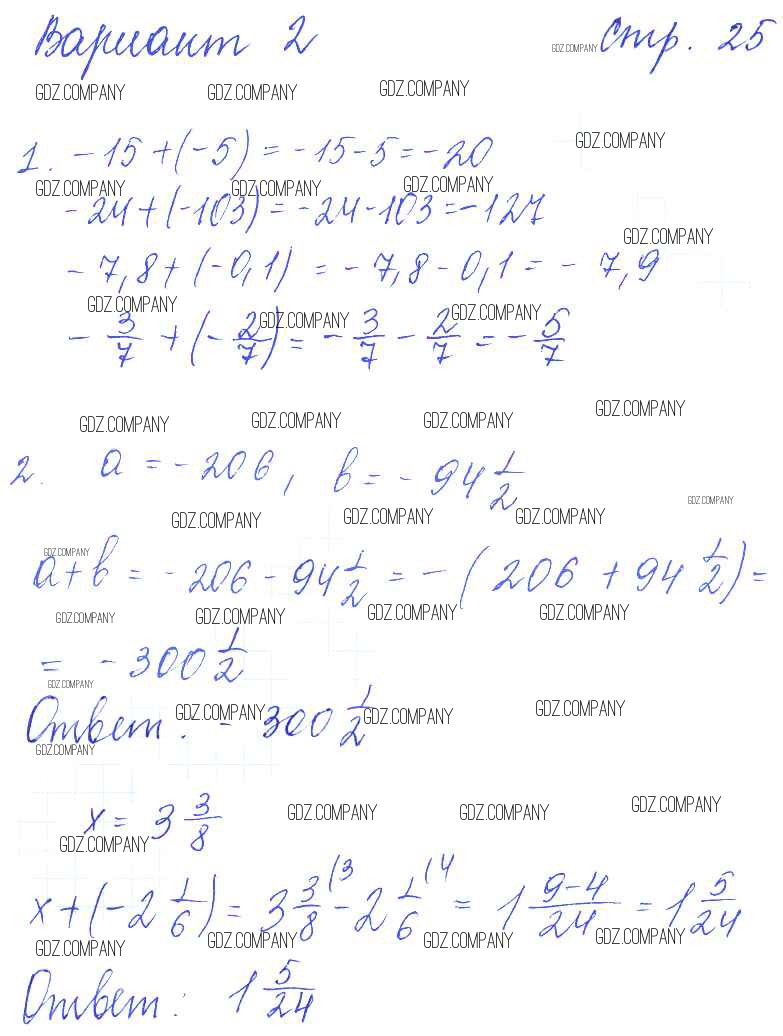 Вариант 2 Стр. 25
GDZ.COMPANY
GDZ.COMPANY GDZ.COMPANY GDZ.COMPANY
GDZ.COMPANY
1. -15 + (-5) = -15 - 5 = -20
GDZ.COMPANY GDZ.COMPANY GDZ.COMPANY
-24 + (-103) = -24 - 103 = -127
GDZ.COMPANY
-7,8 + (-0,1) = -7,8 - 0,1 = -7,9
GDZ.COMPANY GDZ.COMPANY GDZ.COMPANY
-3/7 + (-2/7) = -3/7 - 2/7 = -5/7
GDZ.COMPANY GDZ.COMPANY GDZ.COMPANY GDZ.COMPANY
2. a = -206, b = -94 1/2
GDZ.COMPANY
GDZ.COMPANY GDZ.COMPANY GDZ.COMPANY
GDZ.COMPANY
a + b = -206 - 94 1/2 = -(206 + 94 1/2) =
GDZ.COMPANY GDZ.COMPANY GDZ.COMPANY GDZ.COMPANY
= -300 1/2
GDZ.COMPANY
Ответ: -300 1/2
GDZ.COMPANY GDZ.COMPANY GDZ.COMPANY
GDZ.COMPANY
x = 3 3/8
GDZ.COMPANY GDZ.COMPANY GDZ.COMPANY
GDZ.COMPANY
x + (-2 1/6) = 3 3/8 (3 - 2 1/6 (4 = 1 9-4/24 = 1 5/24
GDZ.COMPANY GDZ.COMPANY GDZ.COMPANY GDZ.COMPANY
Ответ: 1 5/24